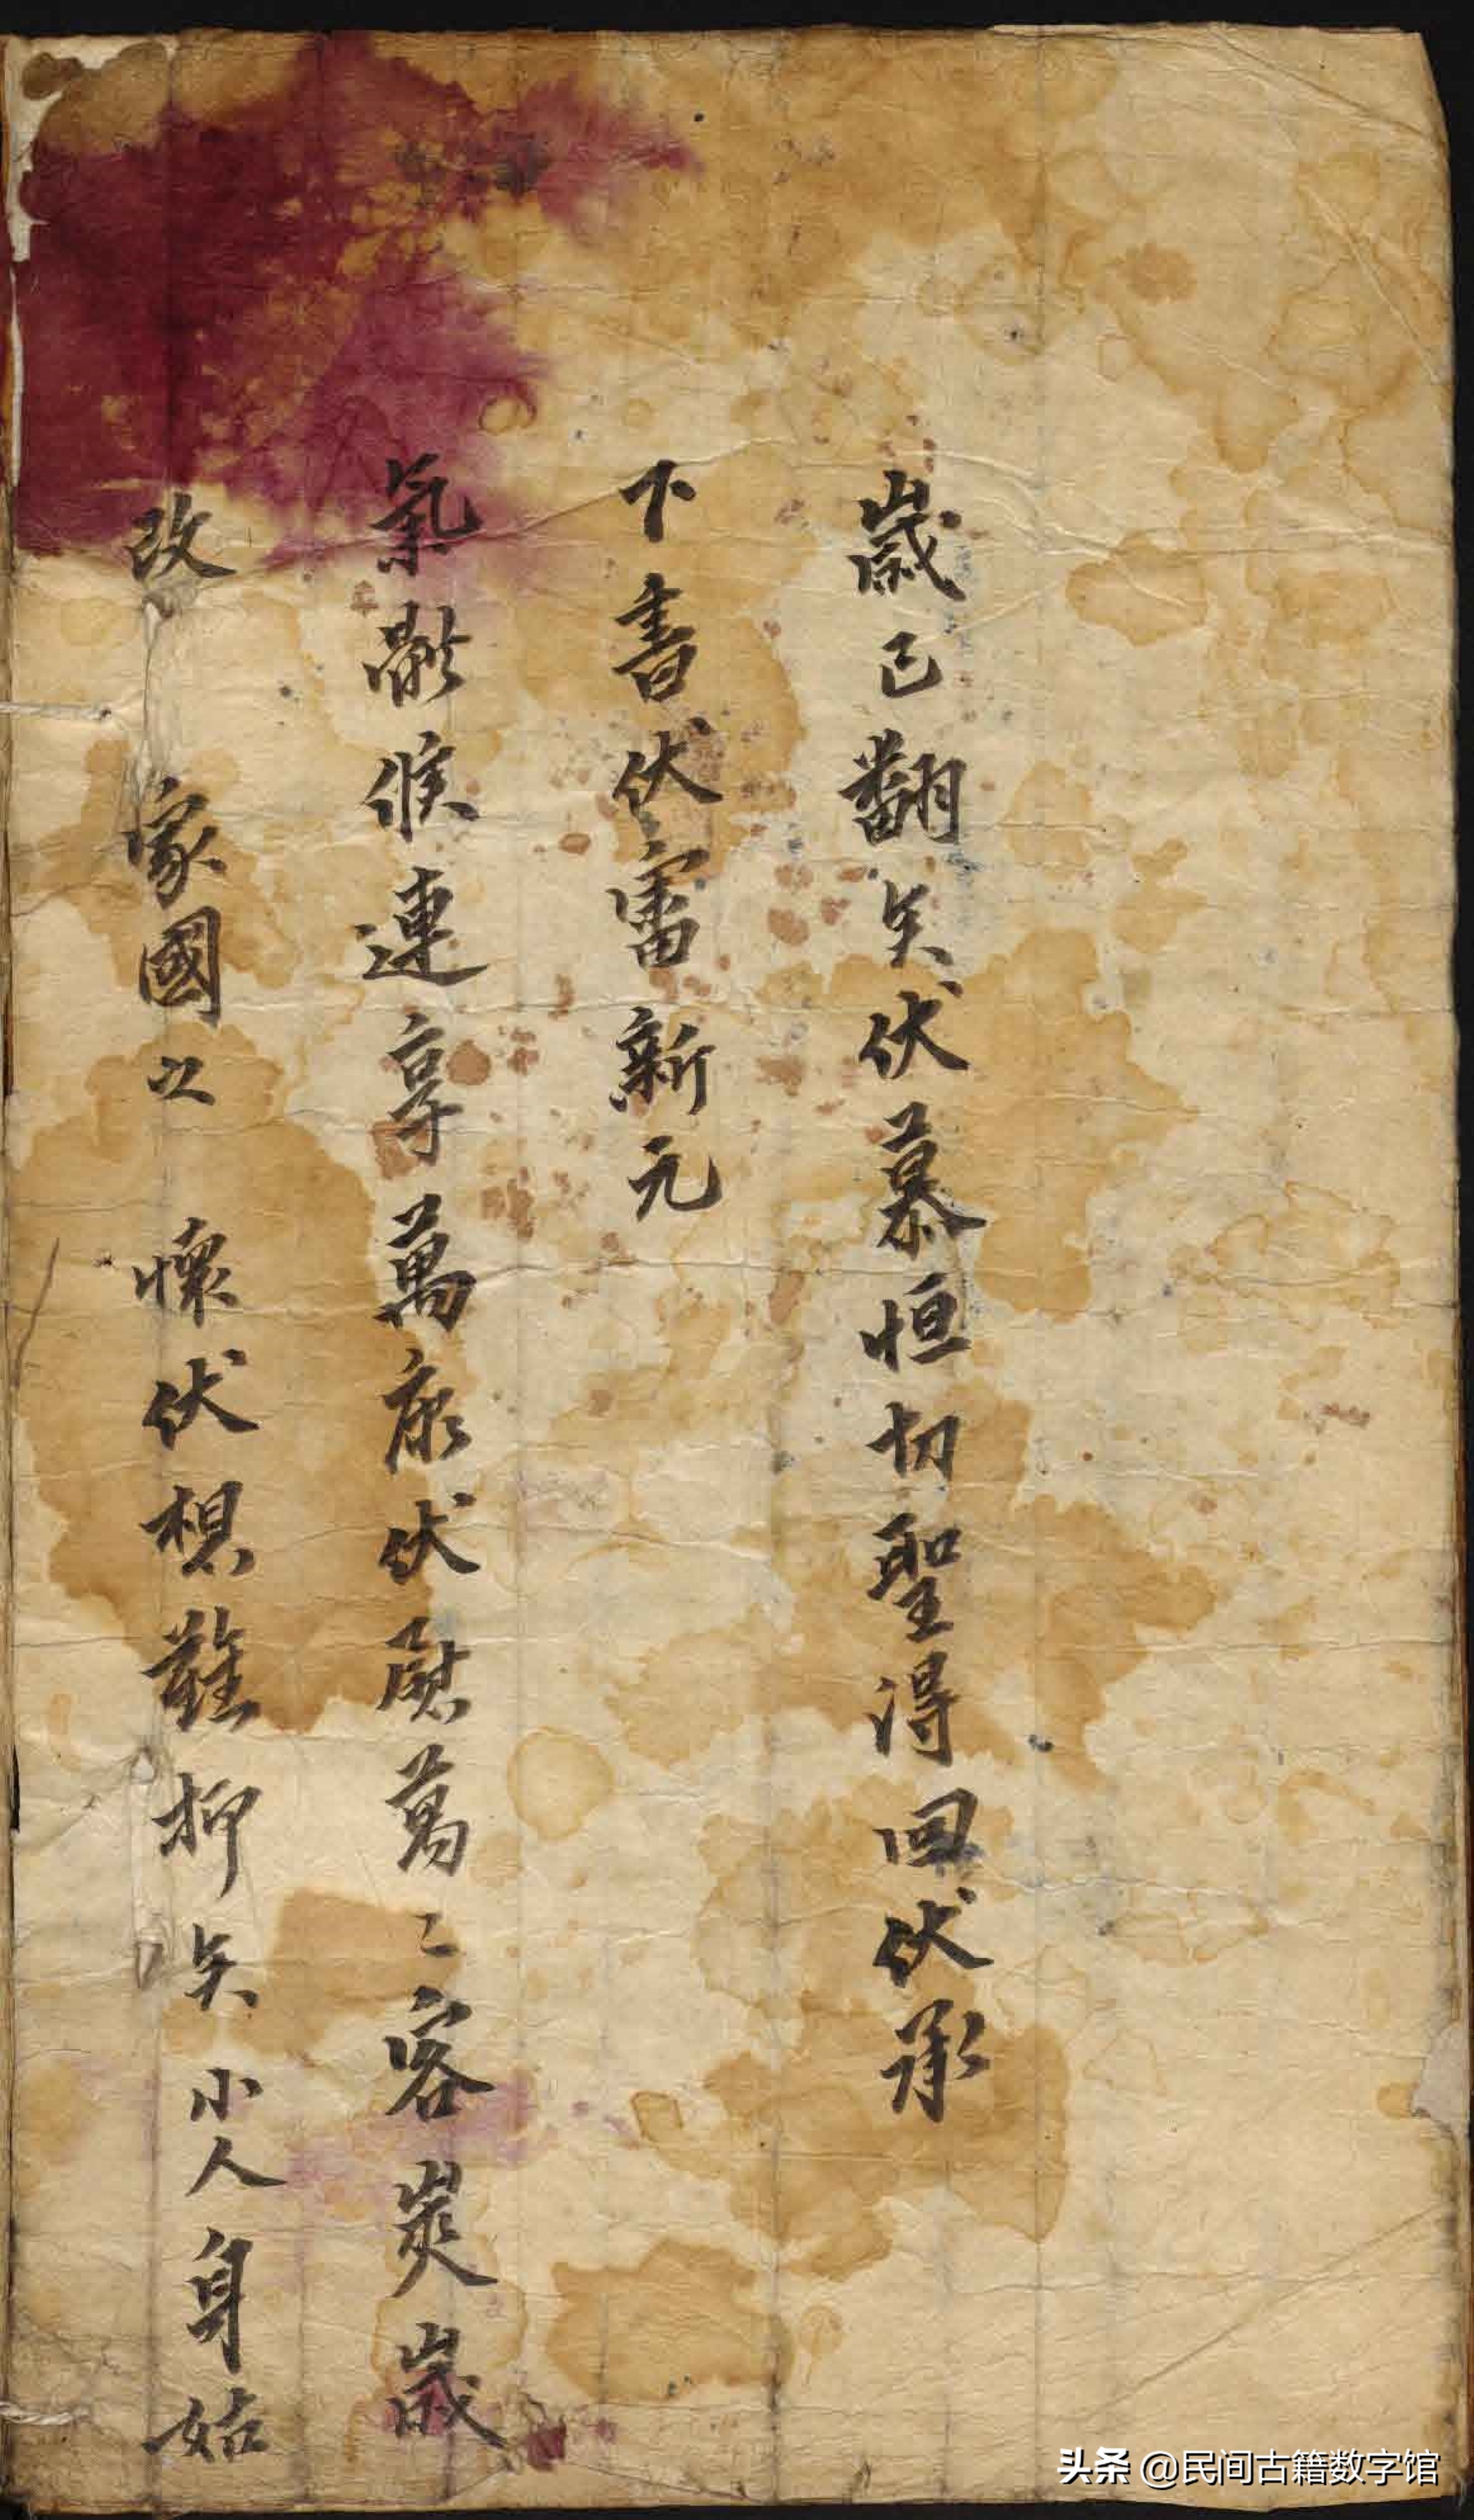 歲已翻矣伏慕恒切聖得回伏承
下書伏審新元
氣候連享萬康伏慰萬〻客歲
改 家國之 懷伏想難抑矣小人身姑
头条 @民间古籍数字馆